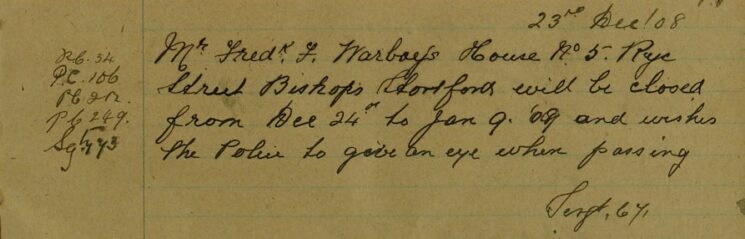 23rd Dec/08
Mr Fredk. F. Warboys House No 5. Rye
Street Bishops Stortford will be closed
from Dec 24th to Jan 9. '09 and wishes
the Police to give an eye when passing
Sergt. 67.
P.C. 34
P.C. 106
P.C. 249.
Sgt 73